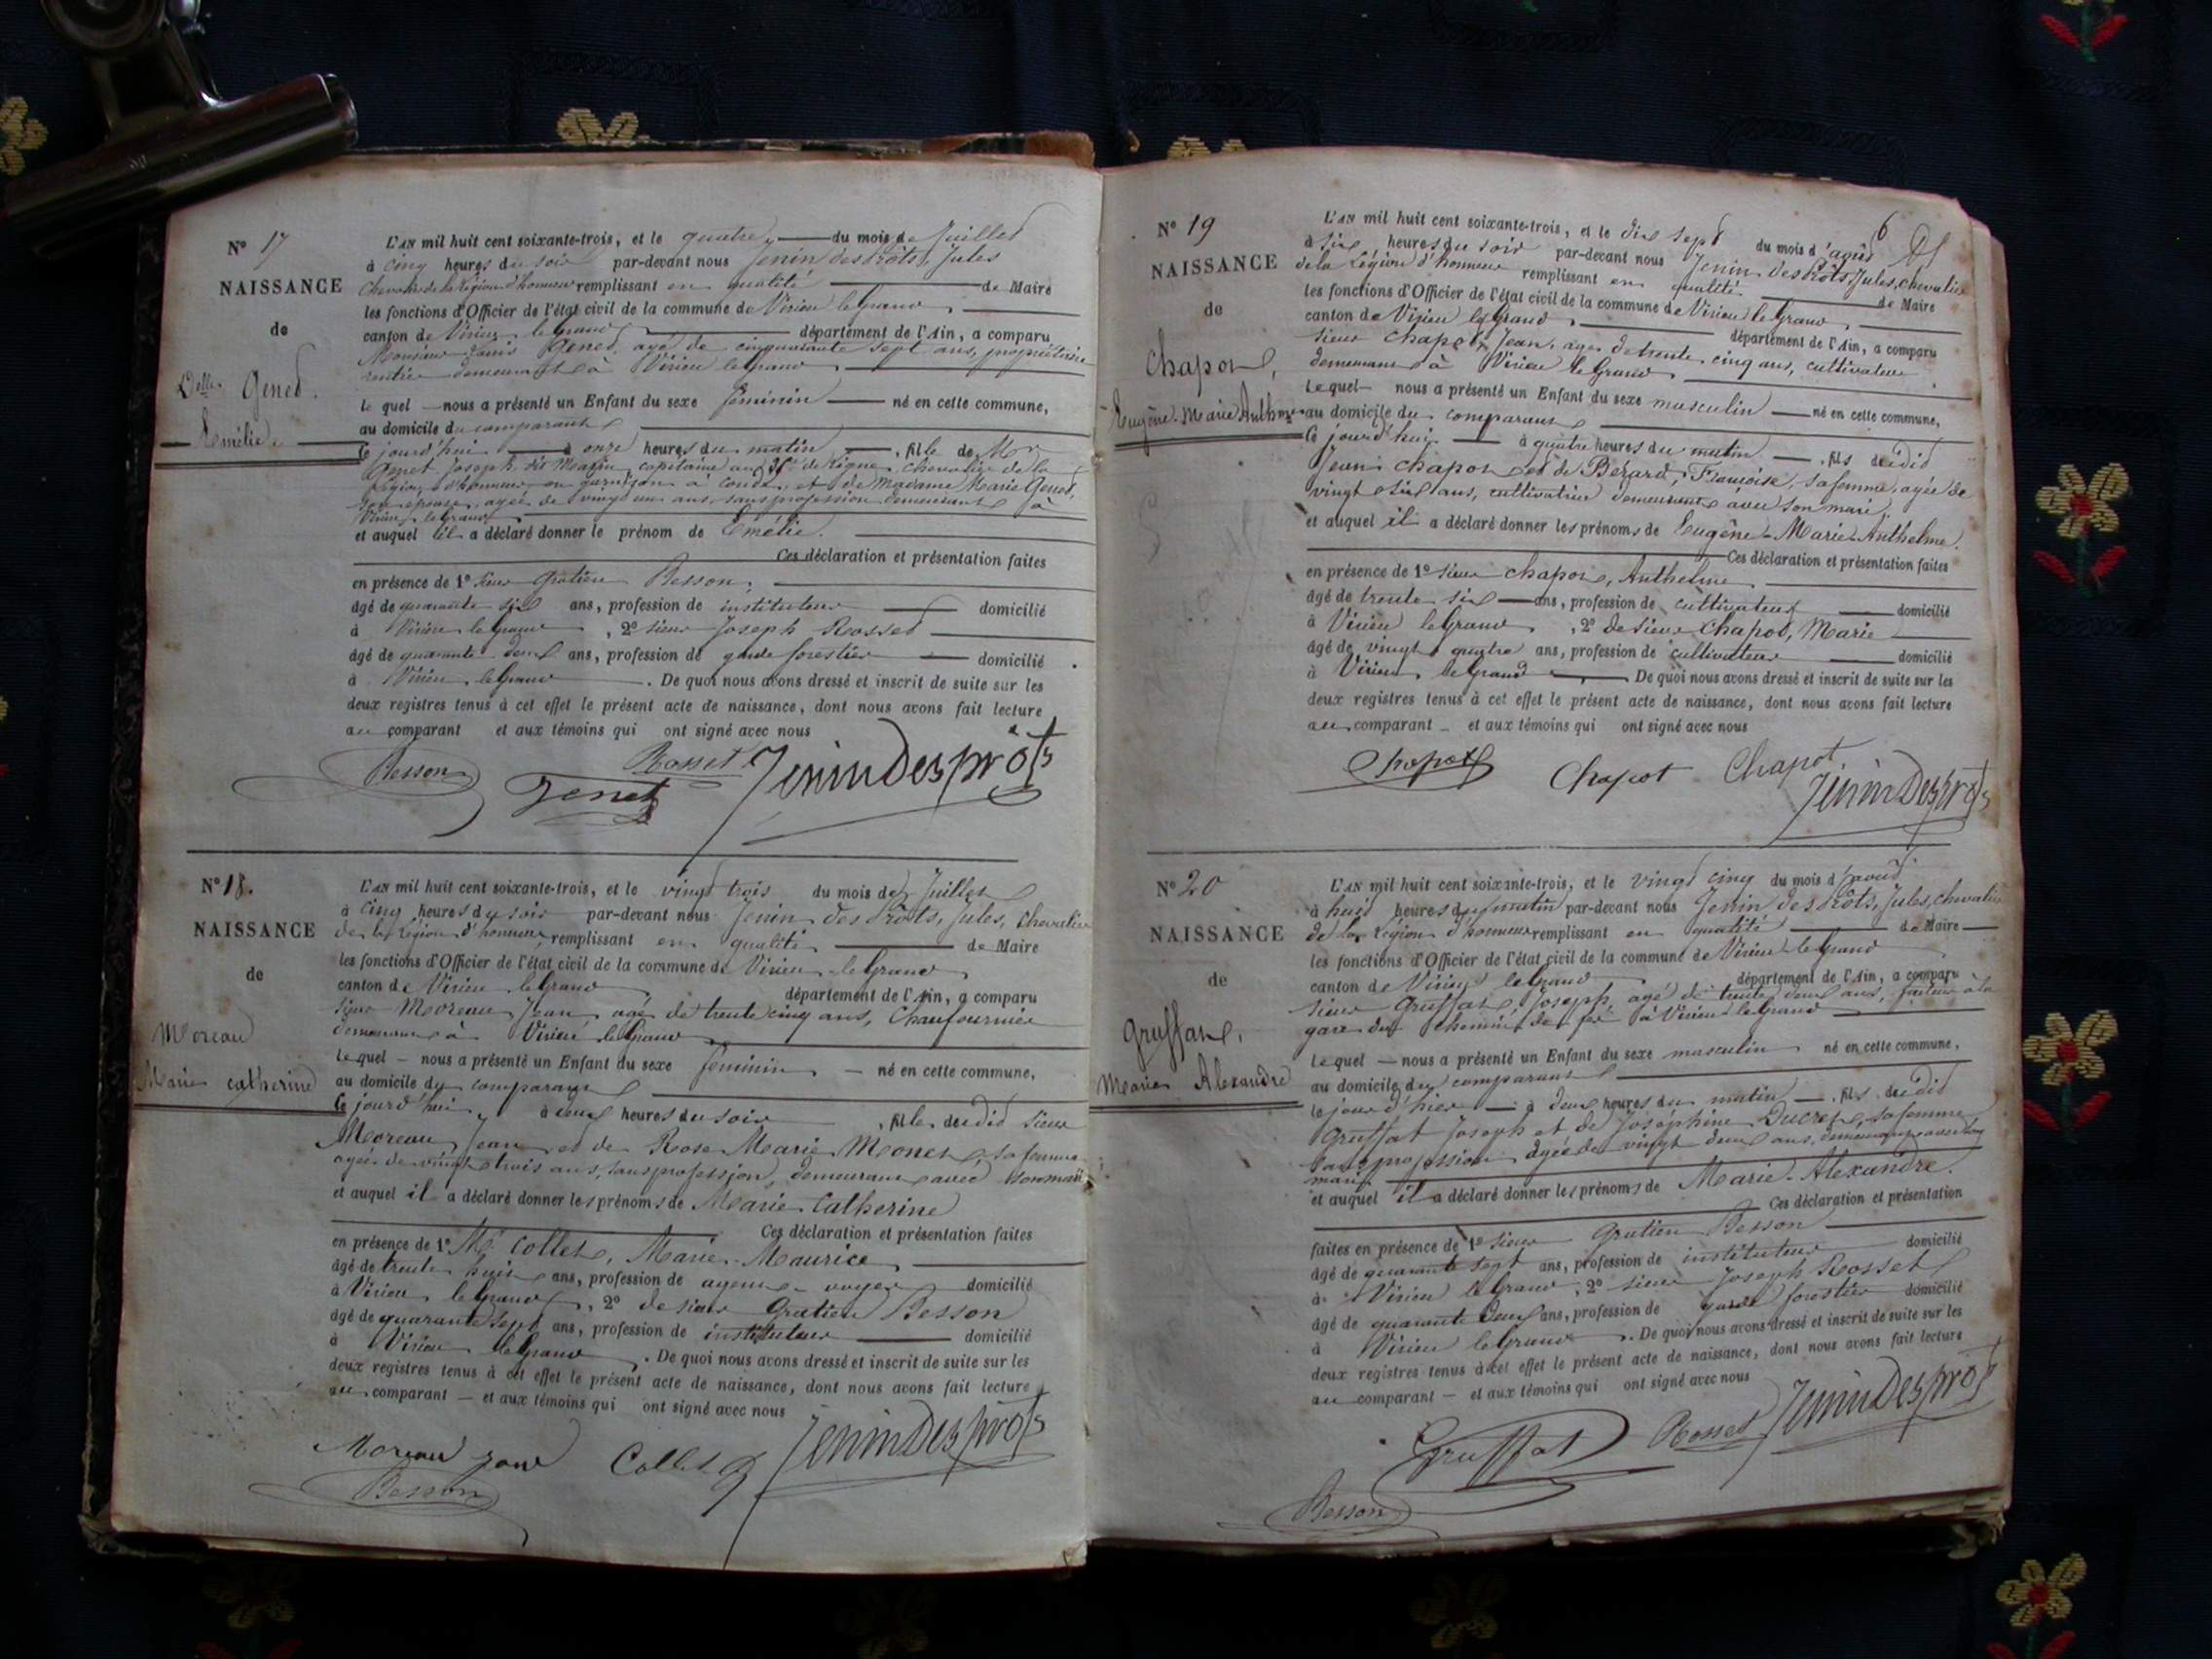 N° 17
NAISSANCE
de
Delle Genet
Emélie
L'AN mil huit cent soixante-trois, et le quatre du mois de Juillet
à cinq heures du soir par-devant nous Jenin des Prôts, Jules
Chevalier de la Légion d'honneur remplissant en qualité de Maire
les fonctions d'Officier de l'état civil de la commune de Virieu le Grand
canton de Virieu le Grand département de l'Ain, a comparu
Monsieur Genet, agé de cinquante sept ans, propriétaire
rentier demeurant à Virieu le Grand
le quel nous a présenté un Enfant du sexe féminin né en cette commune,
au domicile du comparant
ce jourd'hui à onze heures du matin, fille de Mr
Genet Joseph dit capitaine au de ligne, chevalier de la
Légion d'honneur en garnison à et de madame Marie Genet,
son épouse, agée de vingt un ans, sans profession demeurant à
Virieu le Grand
et auquel il a déclaré donner le prénom de Emélie.
Ces déclaration et présentation faites
en présence de 1° sieur Gratien Besson,
âgé de quarante six ans, profession de instituteur domicilié
à Virieu le Grand, 2° sieur Joseph Rosset
âgé de quarante deux ans, profession de garde forestier domicilié
à Virieu le Grand. De quoi nous avons dressé et inscrit de suite sur les
deux registres tenus à cet effet le présent acte de naissance, dont nous avons fait lecture
au comparant et aux témoins qui ont signé avec nous
Besson Genet Rosset JeninDesprôts
N° 18.
NAISSANCE
de
Moreau
Marie Catherine
L'AN mil huit cent soixante-trois, et le vingt trois du mois de Juillet
à cinq heures du soir par-devant nous Jenin des Prôts, Jules, Chevalier
de la Légion d'honneur, remplissant en qualité de Maire
les fonctions d'Officier de l'état civil de la commune de Virieu le Grand
canton de Virieu le Grand département de l'Ain, a comparu
sieur Moreau, Jean, agé de trente cinq ans, Chaufournier
demeurant à Virieu le Grand
Lequel nous a présenté un Enfant du sexe féminin né en cette commune,
au domicile du comparant
Ce jourd'hui, à deux heures du soir, fille dudit sieur
Moreau, Jean et de Rose Marie Monet, sa femme
agée de vingt trois ans, sans profession, demeurant avec son mari
et auquel il a déclaré donner les prénoms de Marie Catherine
Ces déclaration et présentation faites
en présence de 1° Mr Collet, Marie-Maurice,
âgé de trente huit ans, profession de agent-voyer domicilié
à Virieu le Grand, 2° de sieur Gratien Besson
âgé de quarante sept ans, profession de instituteur domicilié
à Virieu le Grand. De quoi nous avons dressé et inscrit de suite sur les
deux registres tenus à cet effet le présent acte de naissance, dont nous avons fait lecture
au comparant et aux témoins qui ont signé avec nous
Moreau Collet JeninDesprôts
Besson
6
N° 19
NAISSANCE
de
Chapot,
Eugène-Marie Anthme
L'AN mil huit cent soixante-trois, et le dix sept du mois d'août
à six heures du soir par-devant nous Jenin des Prôts, Jules, chevalier
de la Légion d'honneur remplissant en qualité de Maire
les fonctions d'Officier de l'état civil de la commune de Virieu le Grand,
canton de Virieu le Grand, département de l'Ain, a comparu
sieur Chapot, Jean, agé de trente cinq ans, cultivateur
demeurant à Virieu le Grand
Lequel nous a présenté un Enfant du sexe masculin né en cette commune,
au domicile du comparant
Ce jourd'hui à quatre heures du matin, fils dudit
Jean Chapot et de Bérard, Françoise, sa femme, agée de
vingt six ans, cultivatrice demeurant avec son mari,
et auquel il a déclaré donner les prénoms de Eugène-Marie-Anthelme.
Ces déclaration et présentation faites
en présence de 1° sieur Chapot, Anthelme
âgé de trente six ans, profession de cultivateur domicilié
à Virieu le Grand, 2° de sieur Chapot, Marie
âgé de vingt quatre ans, profession de cultivateur domicilié
à Virieu le Grand. De quoi nous avons dressé et inscrit de suite sur les
deux registres tenus à cet effet le présent acte de naissance, dont nous avons fait lecture
au comparant et aux témoins qui ont signé avec nous
Chapot Chapot Chapot JeninDesprôts
N° 20
NAISSANCE
de
Gruffat,
Marie Alexandre
L'AN mil huit cent soixante-trois, et le vingt cinq du mois d'août
à huit heures du matin par-devant nous Jenin des Prôts, Jules, chevalier
de la Légion d'honneur remplissant en qualité de Maire
les fonctions d'Officier de l'état civil de la commune de Virieu le Grand
canton de Virieu le Grand département de l'Ain, a comparu
sieur Gruffat, Joseph, agé de trente deux ans, facteur à la
gare du chemin de fer à Virieu le Grand
Lequel nous a présenté un Enfant du sexe masculin né en cette commune,
au domicile du comparant
le jour d'hier à deux heures du matin, fils dudit
Gruffat Joseph et de Joséphine Ducret, sa femme,
sans profession agée de vingt deux ans, demeurant avec son
mari
et auquel il a déclaré donner les prénoms de Marie-Alexandre.
Ces déclaration et présentation
faites en présence de 1° sieur Gratien Besson
âgé de quarante sept ans, profession de instituteur domicilié
à Virieu le Grand, 2° sieur Joseph Rosset
âgé de quarante deux ans, profession de garde forestier domicilié
à Virieu le Grand. De quoi nous avons dressé et inscrit de suite sur les
deux registres tenus à cet effet le présent acte de naissance, dont nous avons fait lecture
au comparant et aux témoins qui ont signé avec nous
Gruffat Rosset JeninDesprôts
Besson